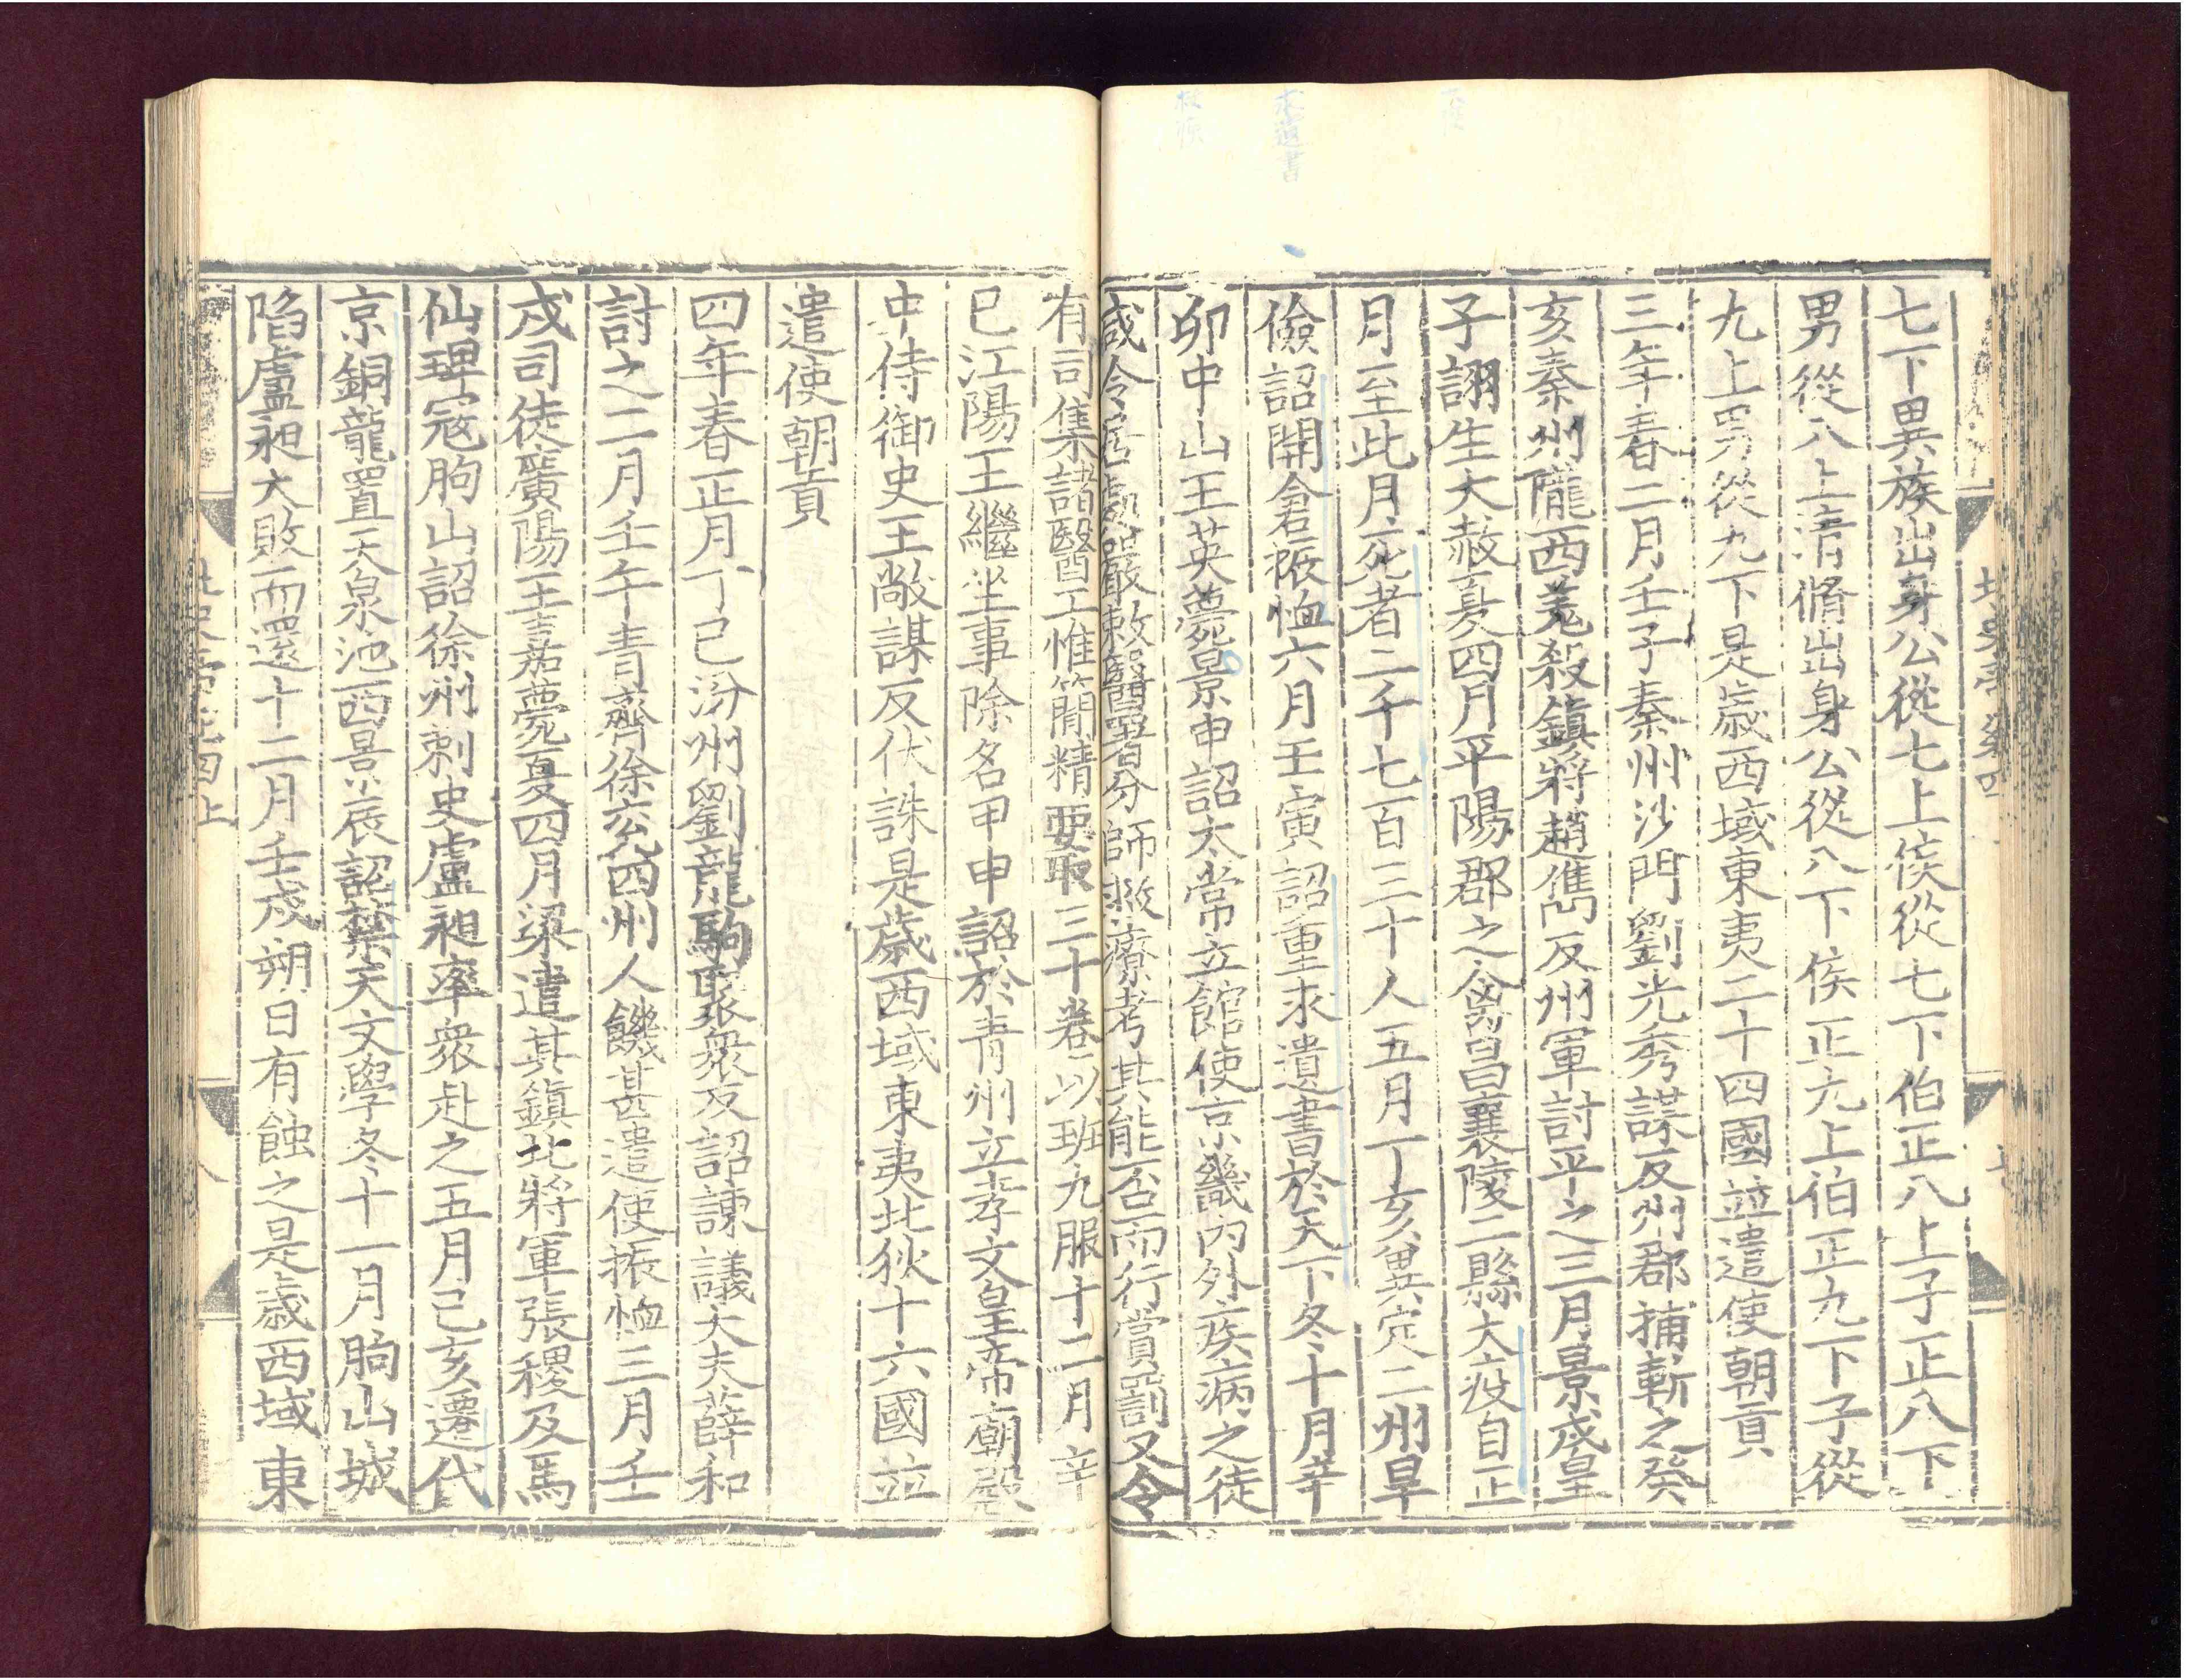 七下異族出身公從七上侯從七下伯正八上子正八下
男從八上清脩出身公從八下侯正九上伯正九下子從
九上男從九下是歲西域東夷二十四國並遣使朝貢
三年春二月壬子秦州沙門劉光秀謀反州郡捕斬之癸
亥秦州隴西羌殺鎮將趙儁反州軍討平之三月景戌皇
子詡生大赦夏四月平陽郡之禽昌襄陵二縣大疫自正
月至此月死者二千七百三十人五月丁亥冀定二州旱
儉詔開倉振恤六月壬寅詔重求遺書於天下冬十月辛
卯中山王英薨景申詔太常立館使京畿內外疾病之徒
咸令居處嚴敕醫署分師救療考其能否而行賞罰又令
有司集諸醫工惟簡精要取三十卷以班九服十二月辛
巳江陽王繼坐事除名甲申詔於青州立孝文皇帝廟殿
中侍御史王敞謀反伏誅是歲西域東夷北狄十六國並
遣使朝貢
四年春正月丁巳汾州劉龍駒聚衆反詔諫議大夫薛和
討之二月壬午青齊徐兗四州人饑甚遣使振恤三月壬
戌司徒廣陽王嘉薨夏四月梁遣其鎮北將軍張稷及馬
仙琕寇朐山詔徐州刺史盧昶率衆赴之五月己亥遷代
京銅龍置天泉池西景辰詔禁天文學冬十一月朐山城
陷盧昶大敗而還十二月壬戌朔日有蝕之是歲西域東